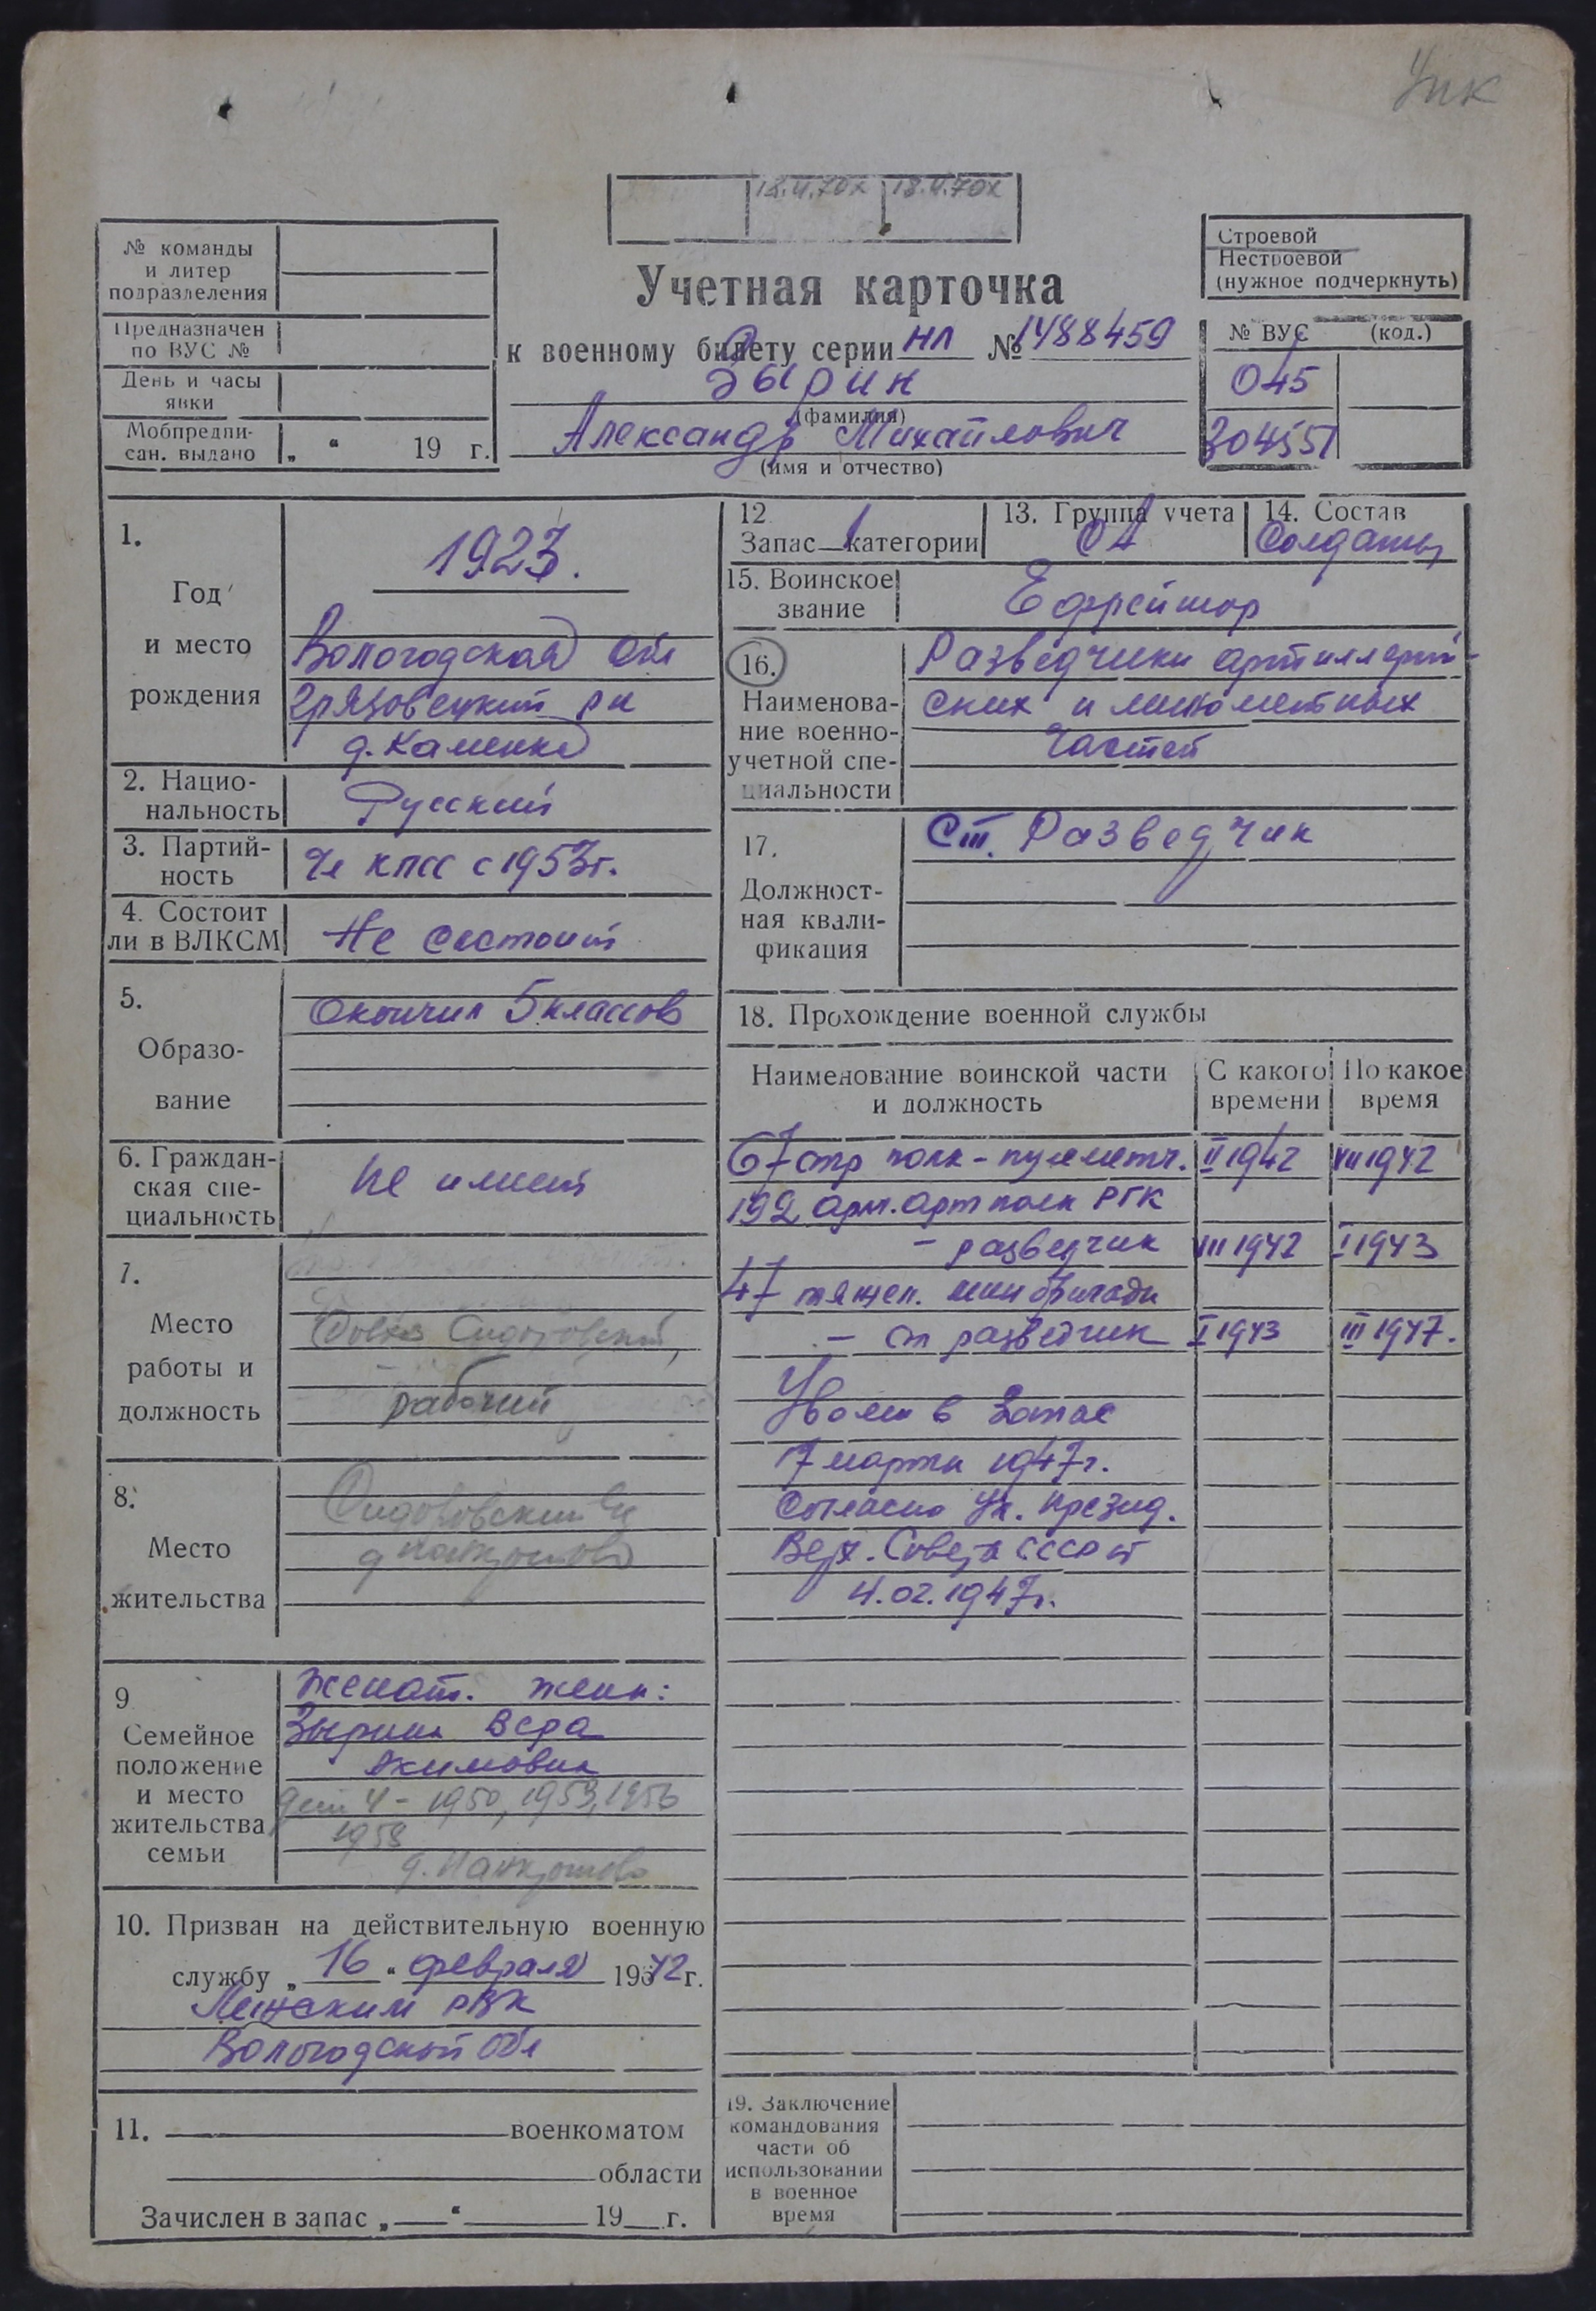 Упк
18.II.70х 18.II.70х
№ команды
и литер
подразделения
Предназначен
по ВУС №
День и часы
явки
Мобпредпи-
сан. выдано „ “ 19 г.
Учетная карточка
к военному билету серии НЛ № 1488459
Зырин
(фамилия)
Александр Михайлович
(имя и отчество)
Строевой
Нестроевой
(нужное подчеркнуть)
№ ВУС (код.)
045
304551
1.
Год
и место
рождения
1923.
Вологодская обл
Грязовецкий рн
д. Каменка
2. Нацио-
нальность
Русский
3. Партий-
ность
Чл КПСС с 1953г.
4. Состоит
ли в ВЛКСМ
Не состоит
5.
Образо-
вание
Окончил 5 классов
6. Граждан-
ская спе-
циальность
Не имеет
7.
Место
работы и
должность
рабочий
8.
Место
жительства
9
Семейное
положение
и место
жительства
семьи
Женат. жена:
Зырина Вера
Акимовна
дети 4 - 1950, 1953, 1956
1958
10. Призван на действительную военную
службу „ 16 “ февраля 1942 г.
РВК
Вологодской обл
11. военкоматом
области
Зачислен в запас „ “ 19 г.
12
Запас 1 категории
13. Группа учета
СА
14. Состав
Солдаты
15. Воинское
звание
Ефрейтор
16.
Наименова-
ние военно-
учетной спе-
циальности
Разведчики артиллерий-
ских и минометных
частей
17.
Должност-
ная квали-
фикация
Ст. Разведчик
18. Прохождение военной службы
Наименование воинской части
и должность
С какого
времени
По какое
время
67 стр полк - пулеметч. II 1942 VIII 1942
192 арм. арт полк РГК
- разведчик VIII 1942 I 1943
47 тяжел. мин бригада
- ст разведчик I 1943 III 1947.
Уволен в запас
17 марта 1947г.
Согласно Ук. Презид.
Верх. Совета СССР от
4.02.1947г.
19. Заключение
командования
части об
использовании
в военное
время